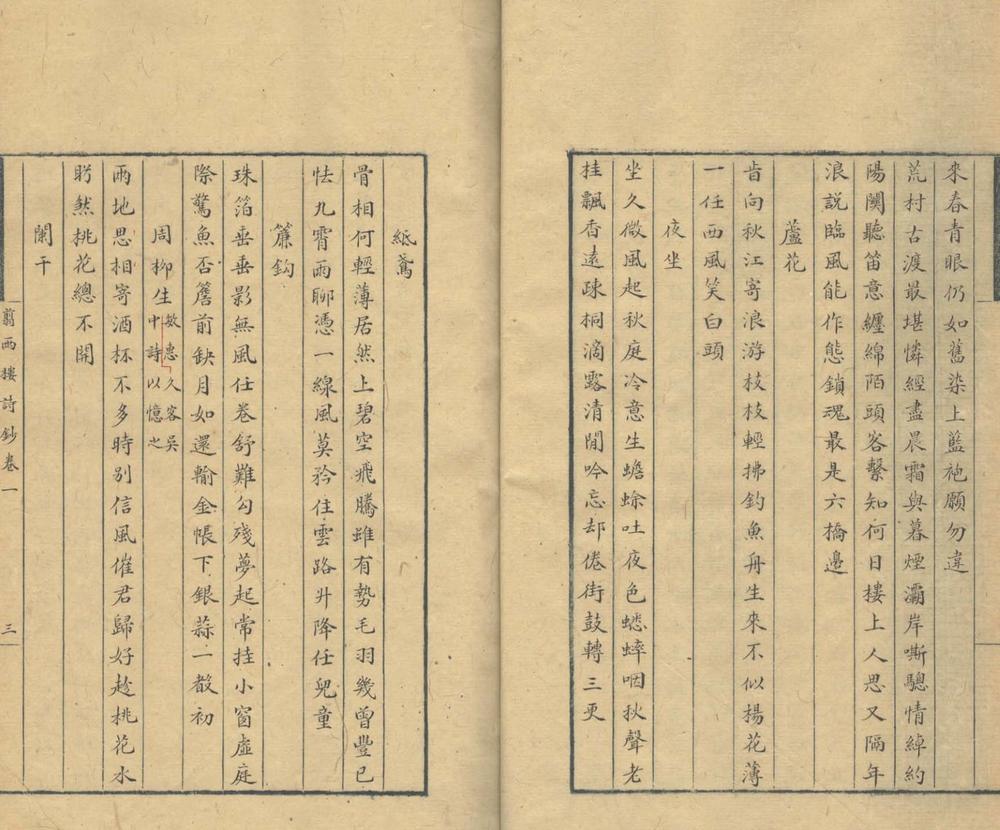 來春青眼仍如舊染上藍袍願勿違
荒村古渡最堪憐經盡晨霜與暮煙灞岸嘶驄情綽約
陽關聽笛意纏綿陌頭客繫知何日樓上人思又隔年
浪說臨風能作態鎖魂最是六橋邊
蘆花
肯向秋江寄浪游枝枝輕拂釣魚舟生來不似揚花薄
一任西風笑白頭
夜坐
坐久微風起秋庭冷意生蟾蜍吐夜色蟋蟀咽秋聲老
桂飄香遠疎桐滴露清閒吟忘却倦街鼓轉三更
紙鳶
骨相何輕薄居然上碧空飛騰雖有勢毛羽幾曾豐已
怯九霄雨聊憑一線風莫矜住雲路升降任兒童
簾鈎
珠箔垂垂影無風任卷舒難勾殘夢起常挂小窗虛庭
際驚魚否簷前缺月如還輸金帳下銀蒜一敲初
周柳生敏惠久客吳
中詩以憶之
兩地思相寄酒杯不多時別信風催君歸好趁桃花水
盻煞桃花總不開
闌干
翦西樓詩鈔卷一
三